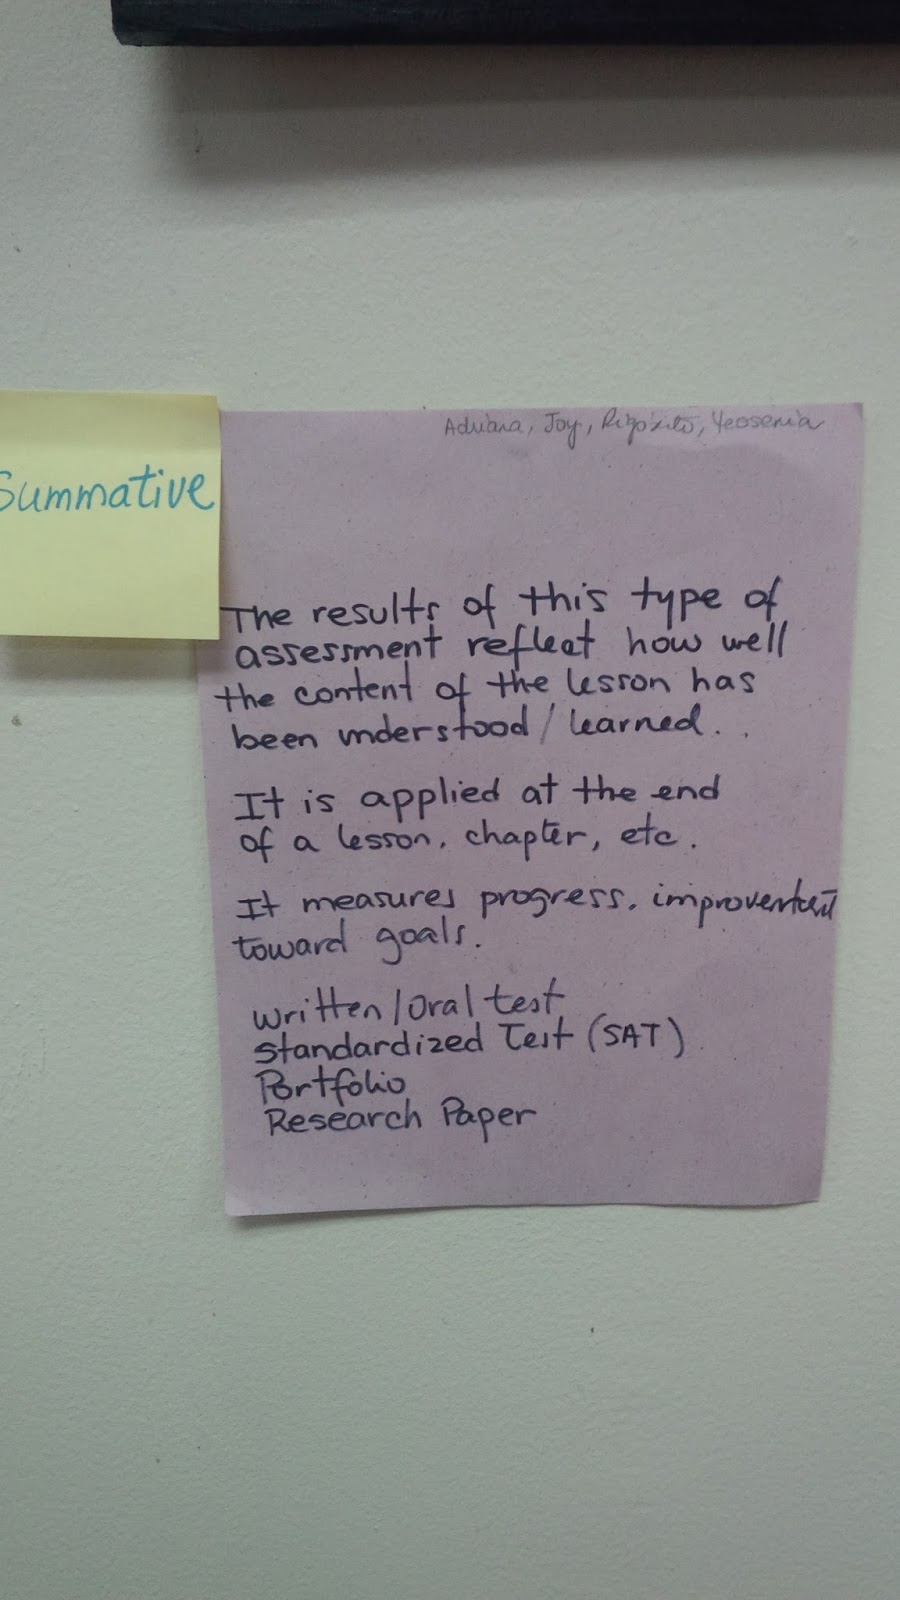 Summative
Adriana, Joy, Yesenia
The results of this type of
assessment reflect how well
the content of the lesson has
been understood / learned.
It is applied at the end
of a lesson, chapter, etc.
It measures progress, improvement
toward goals.
written / oral test
Standardized Test (SAT)
Portfolio
Research Paper